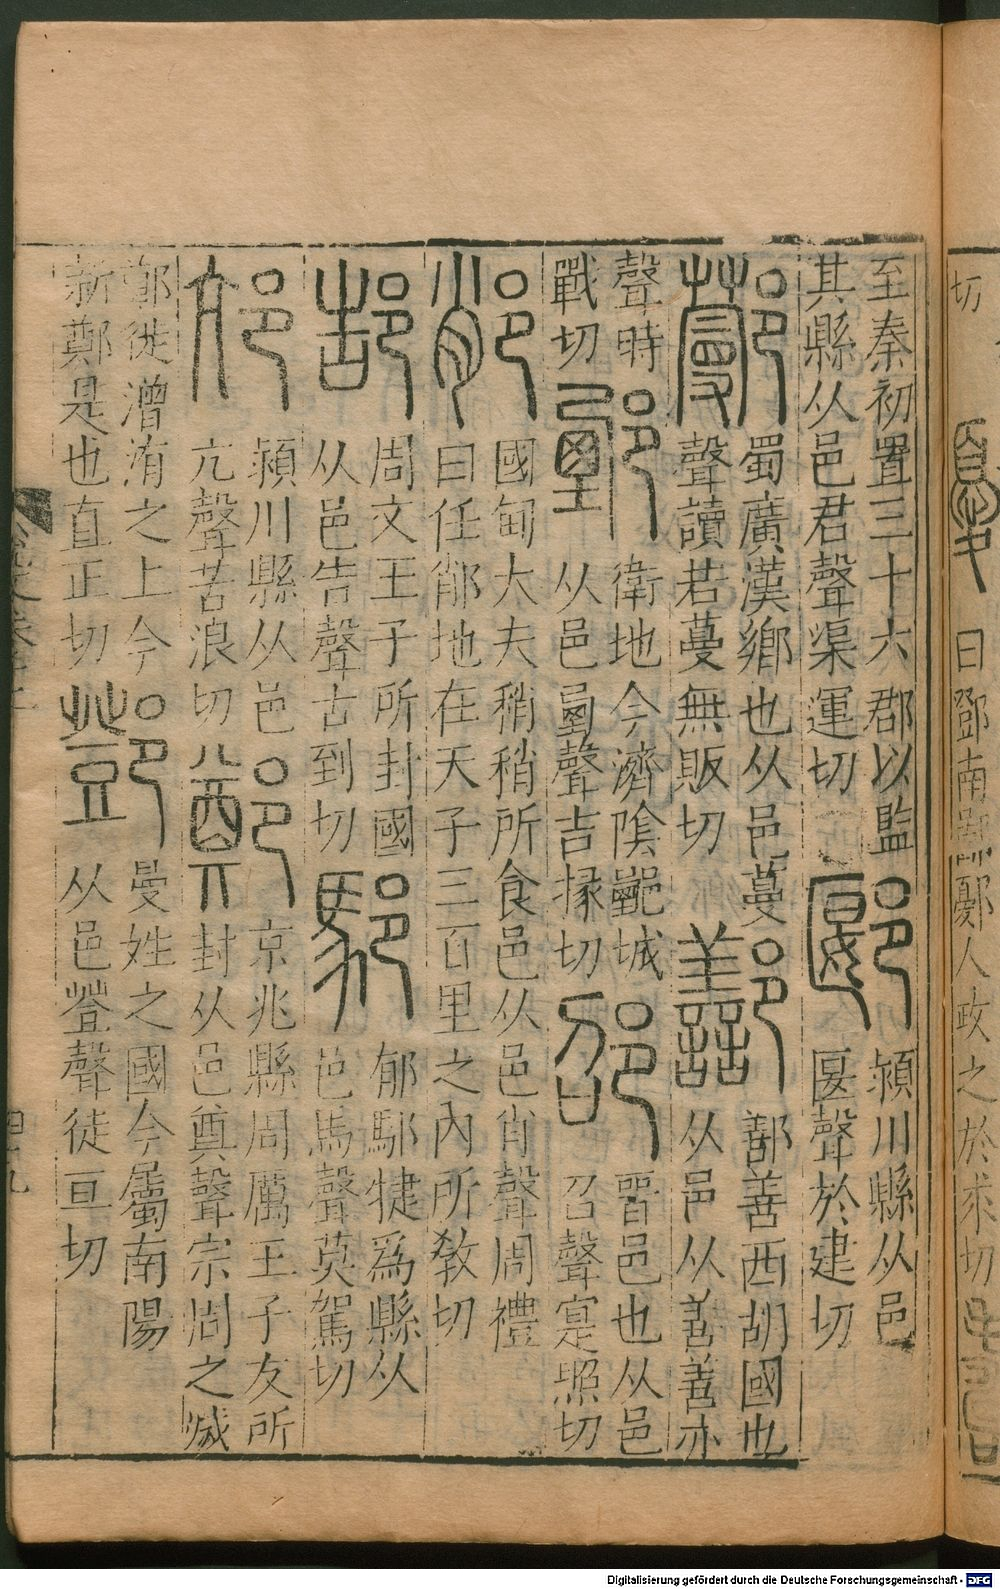 切
鄾
日鄧南鄙鄾人攻之於求切
至秦初置三十六郡以監
其縣从邑君聲渠運切
郾
潁川縣从邑
匽聲於建切
鄤
蜀廣漢鄉也从邑蔓
聲讀若蔓無販切
鄯
鄯善西胡國也
从邑从善善亦
聲時
戰切
鄄
衛地今濟隂鄄城
从邑垔聲吉掾切
邵
晉邑也从邑
召聲寔照切
𨛍
國甸大夫稍稍所食邑从邑肖聲周禮
曰任𨛍地在天子三百里之內所敎切
郜
周文王子所封國
从邑告聲古到切
䣖
郁䣖犍爲縣从
邑馬聲莫駕切
邟
潁川縣从邑
亢聲苦浪切
鄭
京兆縣周厲王子友所
封从邑奠聲宗周之滅
鄭徙潧洧之上今
新鄭是也直正切
鄧
曼姓之國今屬南陽
从邑登聲徒亘切
Digitalisierung gefördert durch die Deutsche Forschungsgemeinschaft - DFG